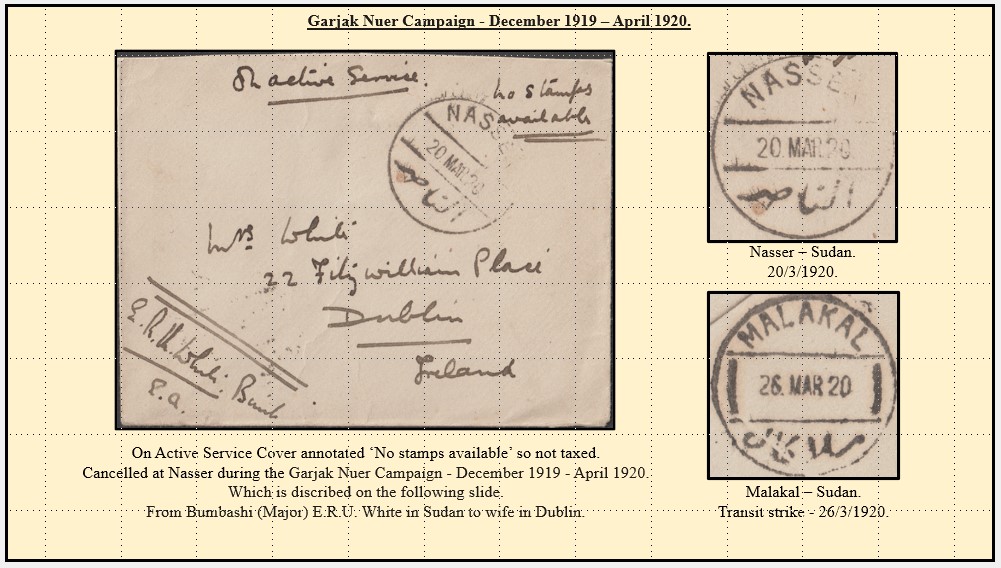 Garjak Nuer Campaign - December 1919 – April 1920.
On active Service.
No stamps
available
NASSE
20.MAR.20
الناصر
Mrs White
22 Fitzwilliam Place
Dublin
Ireland
E.R.U. White. Bimb
E.A.
NASSE
20.MAR.20
الناصر
Nasser – Sudan.
20/3/1920.
MALAKAL
26.MAR 20
ملاكال
Malakal – Sudan.
Transit strike - 26/3/1920.
On Active Service Cover annotated ‘No stamps available’ so not taxed.
Cancelled at Nasser during the Garjak Nuer Campaign - December 1919 - April 1920.
Which is discribed on the following slide.
From Bumbashi (Major) E.R.U. White in Sudan to wife in Dublin.